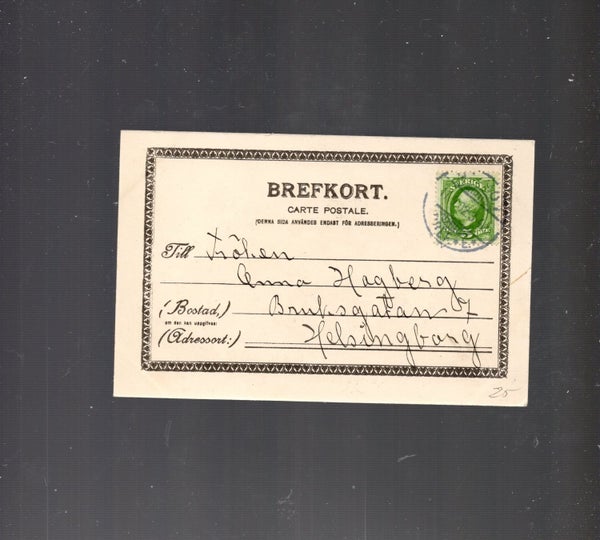 BREFKORT.
CARTE POSTALE.
(DENNA SIDA ANVÄNDES ENDAST FÖR ADRESSERINGEN.)
SVERIGE
Till Fröken
Anna Hagberg
(Bostad,) Bruksgatan 7
om den kan uppgifvas:
(Adressort:) Helsingborg
25